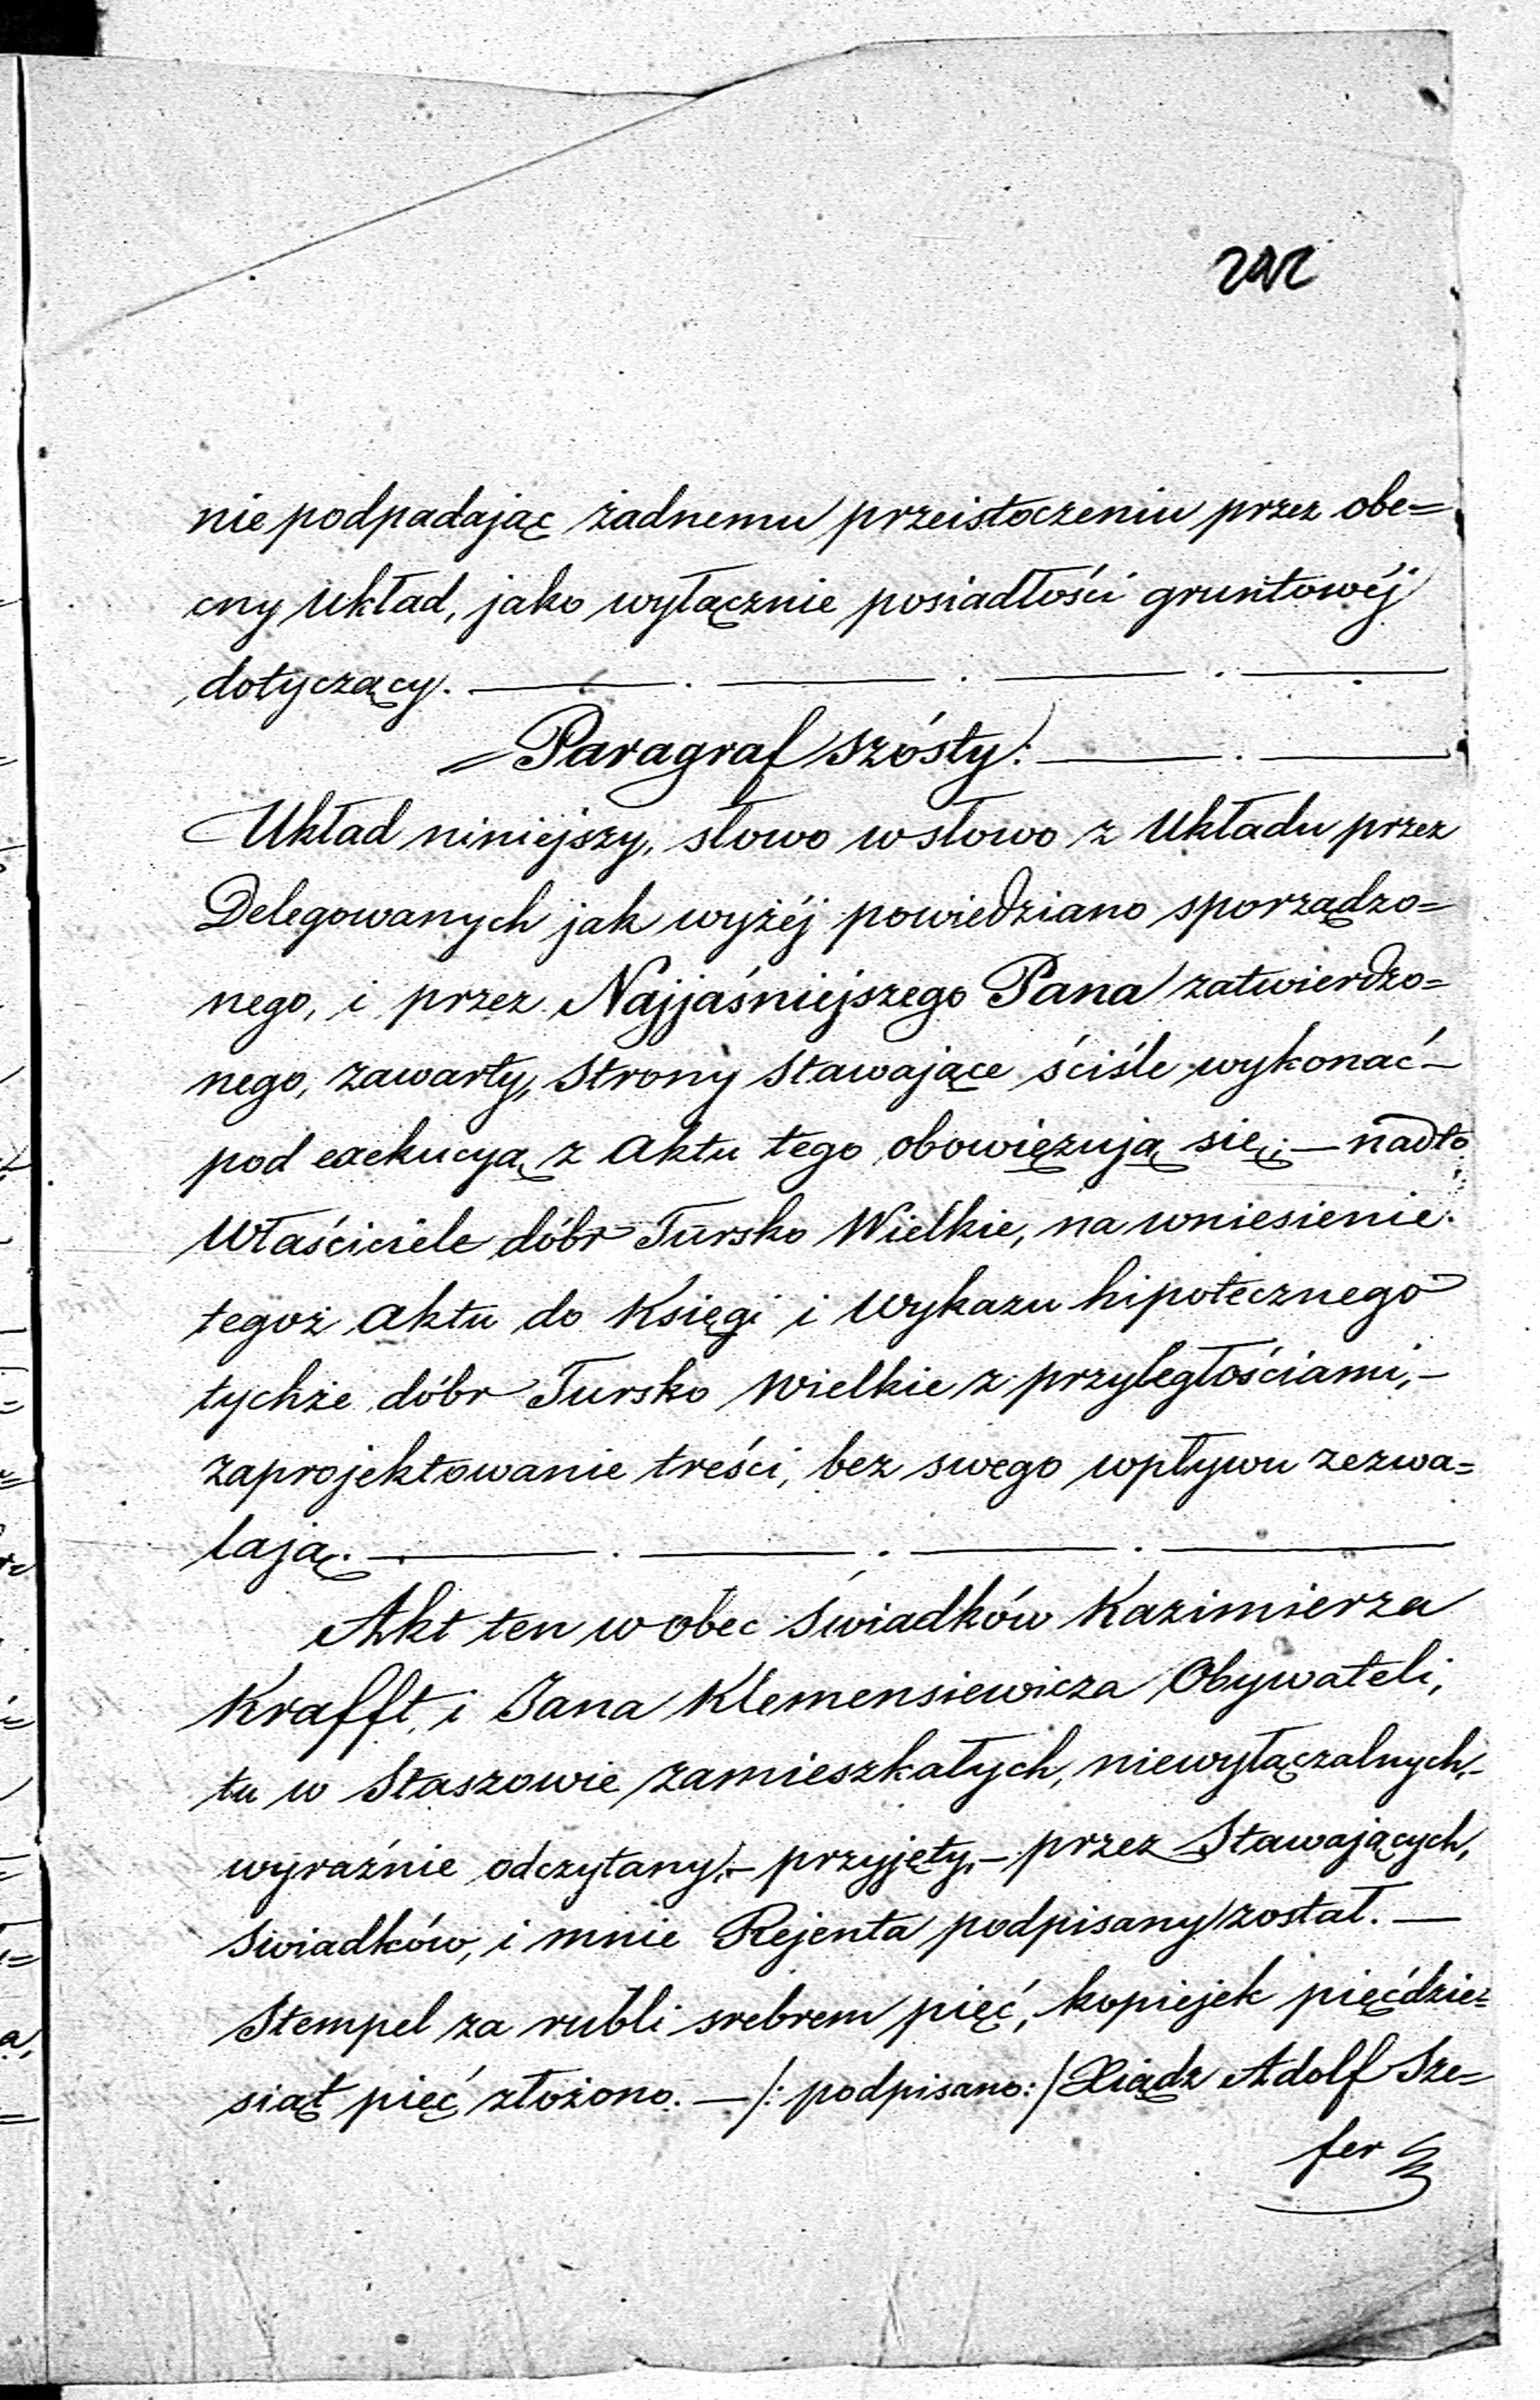 nie podpadając żadnemu przeistoczeniu przez obe=
cny Układ, jako wyłącznie posiadłości gruntowéj
dotyczący. — . — . — . —
= Paragraf szósty: — . —
Układ niniejszy, słowo w słowo z Układu przez
Delegowanych jak wyżéj powiedziano sporządzo=
nego, i przez Najjaśniejszego Pana zatwierdzo=
nego, zawarty, Strony Stawające ściśle wykonać –
pod exekucyą z Aktu tego obowięzują się; – nadto
Właściciele dóbr Tursko Wielkie, na wniesienie
tegoż Aktu do Księgi i Wykazu hipotecznego
tychże dóbr Tursko Wielkie z przyległościami, –
zaprojektowanie treści, bez swego wpływu zezwa=
lają. — . — . — . —
Akt ten w obec Świadków Kazimierza
Krafft, i Jana Klemensiewicza Obywateli,
tu w Staszowie zamieszkałych, niewyłączalnych, –
wyraźnie odczytany, – przyjęty, – przez Stawających,
Świadków, i mnie Rejenta podpisany został. —
Stempel za rubli srebrem pięć, kopiejek pięćdzie=
siąt pięć złożono. — /: podpisano: / Xiądz Adolf Sze=
fer